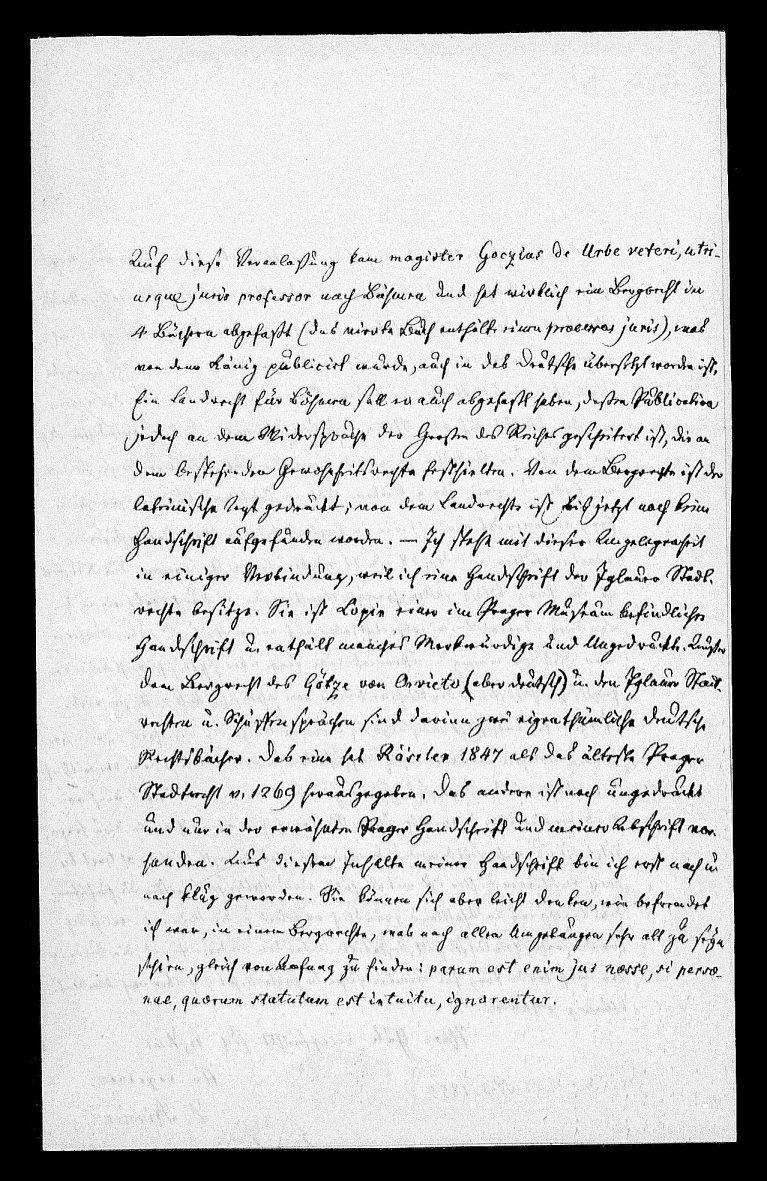 Auf diese Veranlaßung kam magister Goczius de Urbe veteri, utri-
usque juris professor nach Böhmen und hat wirklich ein Bergrecht in
4 Büchern abgefaßt (das vierte Buch enthält einen processus juris), was
von dem König publicirt wurde, auch in das Deutsche übersetzt worden ist,
Ein Landrecht für Böhmen soll er auch abgefaßt haben, dessen Publication
jedoch an dem Widerspruche der Großen des Reiches gescheitert ist, die an
dem bestehenden Gewohnheitsrechte festhielten. Von dem Bergrechte ist der
lateinische Text gedruckt; von dem Landrechte ist bis jetzt noch keine
Handschrift aufgefunden worden. — Ich stehe mit dieser Angelegenheit
in einiger Verbindung, weil ich eine Handschrift der Iglauer Stadt-
rechte besitze. Sie ist Copie einer im Prager Museum befindlichen
Handschrift u. enthält manches Merkwürdige und Ungedruckte. Außer
dem Bergrecht des Götze von Orvieto (aber deutsch) u. den Iglauer Stadt-
rechten u. Schöffensprüchen sind darinn zwei eigenthümliche deutsche
Rechtsbücher. Das eine hat Rössler 1847 als das älteste Prager
Stadtrecht v. 1269 herausgegeben. Das andere ist noch ungedruckt
und nur in der erwähnten Prager Handschrift und meiner Abschrift vor-
handen. Aus diesem Inhalte meiner Handschrift bin ich erst nach u.
nach klug geworden. Sie können sich aber leicht denken, wie befremdet
ich war, in einem Bergrechte, was nach allen Umständen sehr alt zu seyn
schien, gleich von Anfang zu finden: parum est enim jus nosse, si perso-
nae, quarum statutum est intuitu, ignorentur.